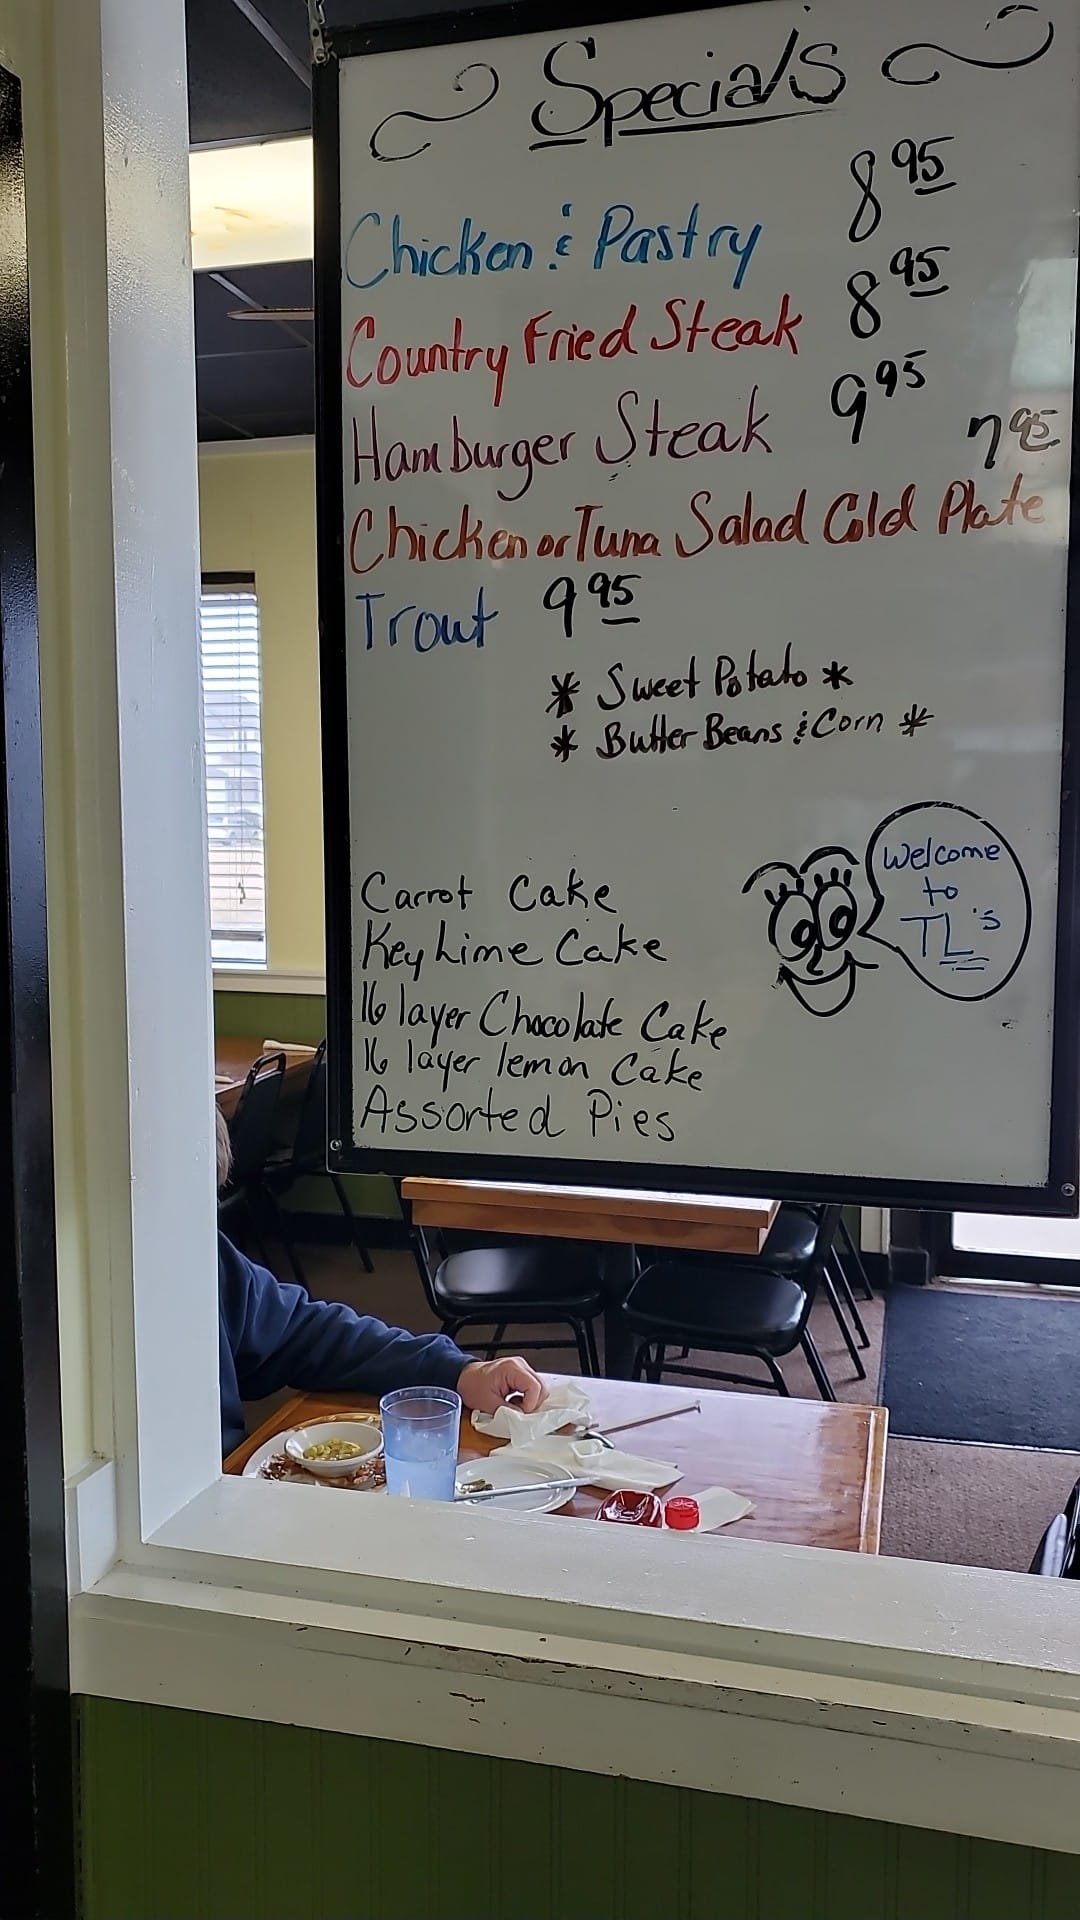 Specials
Chicken & Pastry 8 95
Country Fried Steak 8 95
Hamburger Steak 9 95
7 95
Chicken or Tuna Salad Cold Plate
Trout 9 95
* Sweet Potato *
* Butter Beans & Corn *
Welcome
to
TL's
Carrot Cake
Key Lime Cake
16 layer Chocolate Cake
16 layer lemon Cake
Assorted Pies